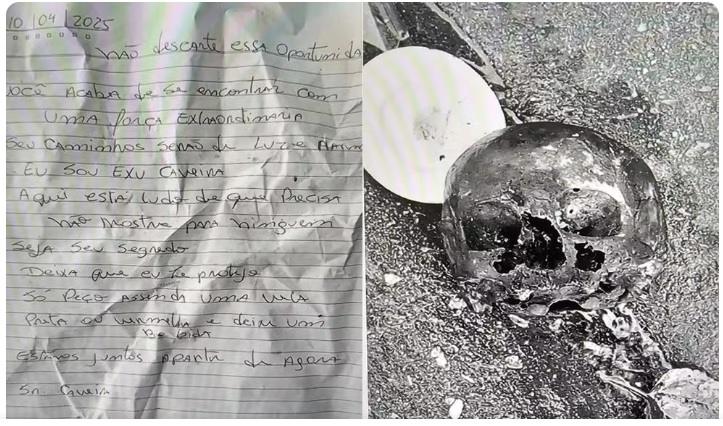 10 | 04 | 2025
NÃO descarte essa oportunida
Você Acaba de se encontrar com
UMA força EXtraordinaria
Seu Caminhos serão de Luz e
EU SOU EXU CAVEIRA
Aqui está tudo de que Precisa
Não mostre para ninguem
Seja Seu Segredo
Deixa que eu te proteja
Só Peço Assenda UMA vela
Preta ou vermelha e deixe um
Be bida
Estamos juntos Apartir de Agora
Sr. Caveira